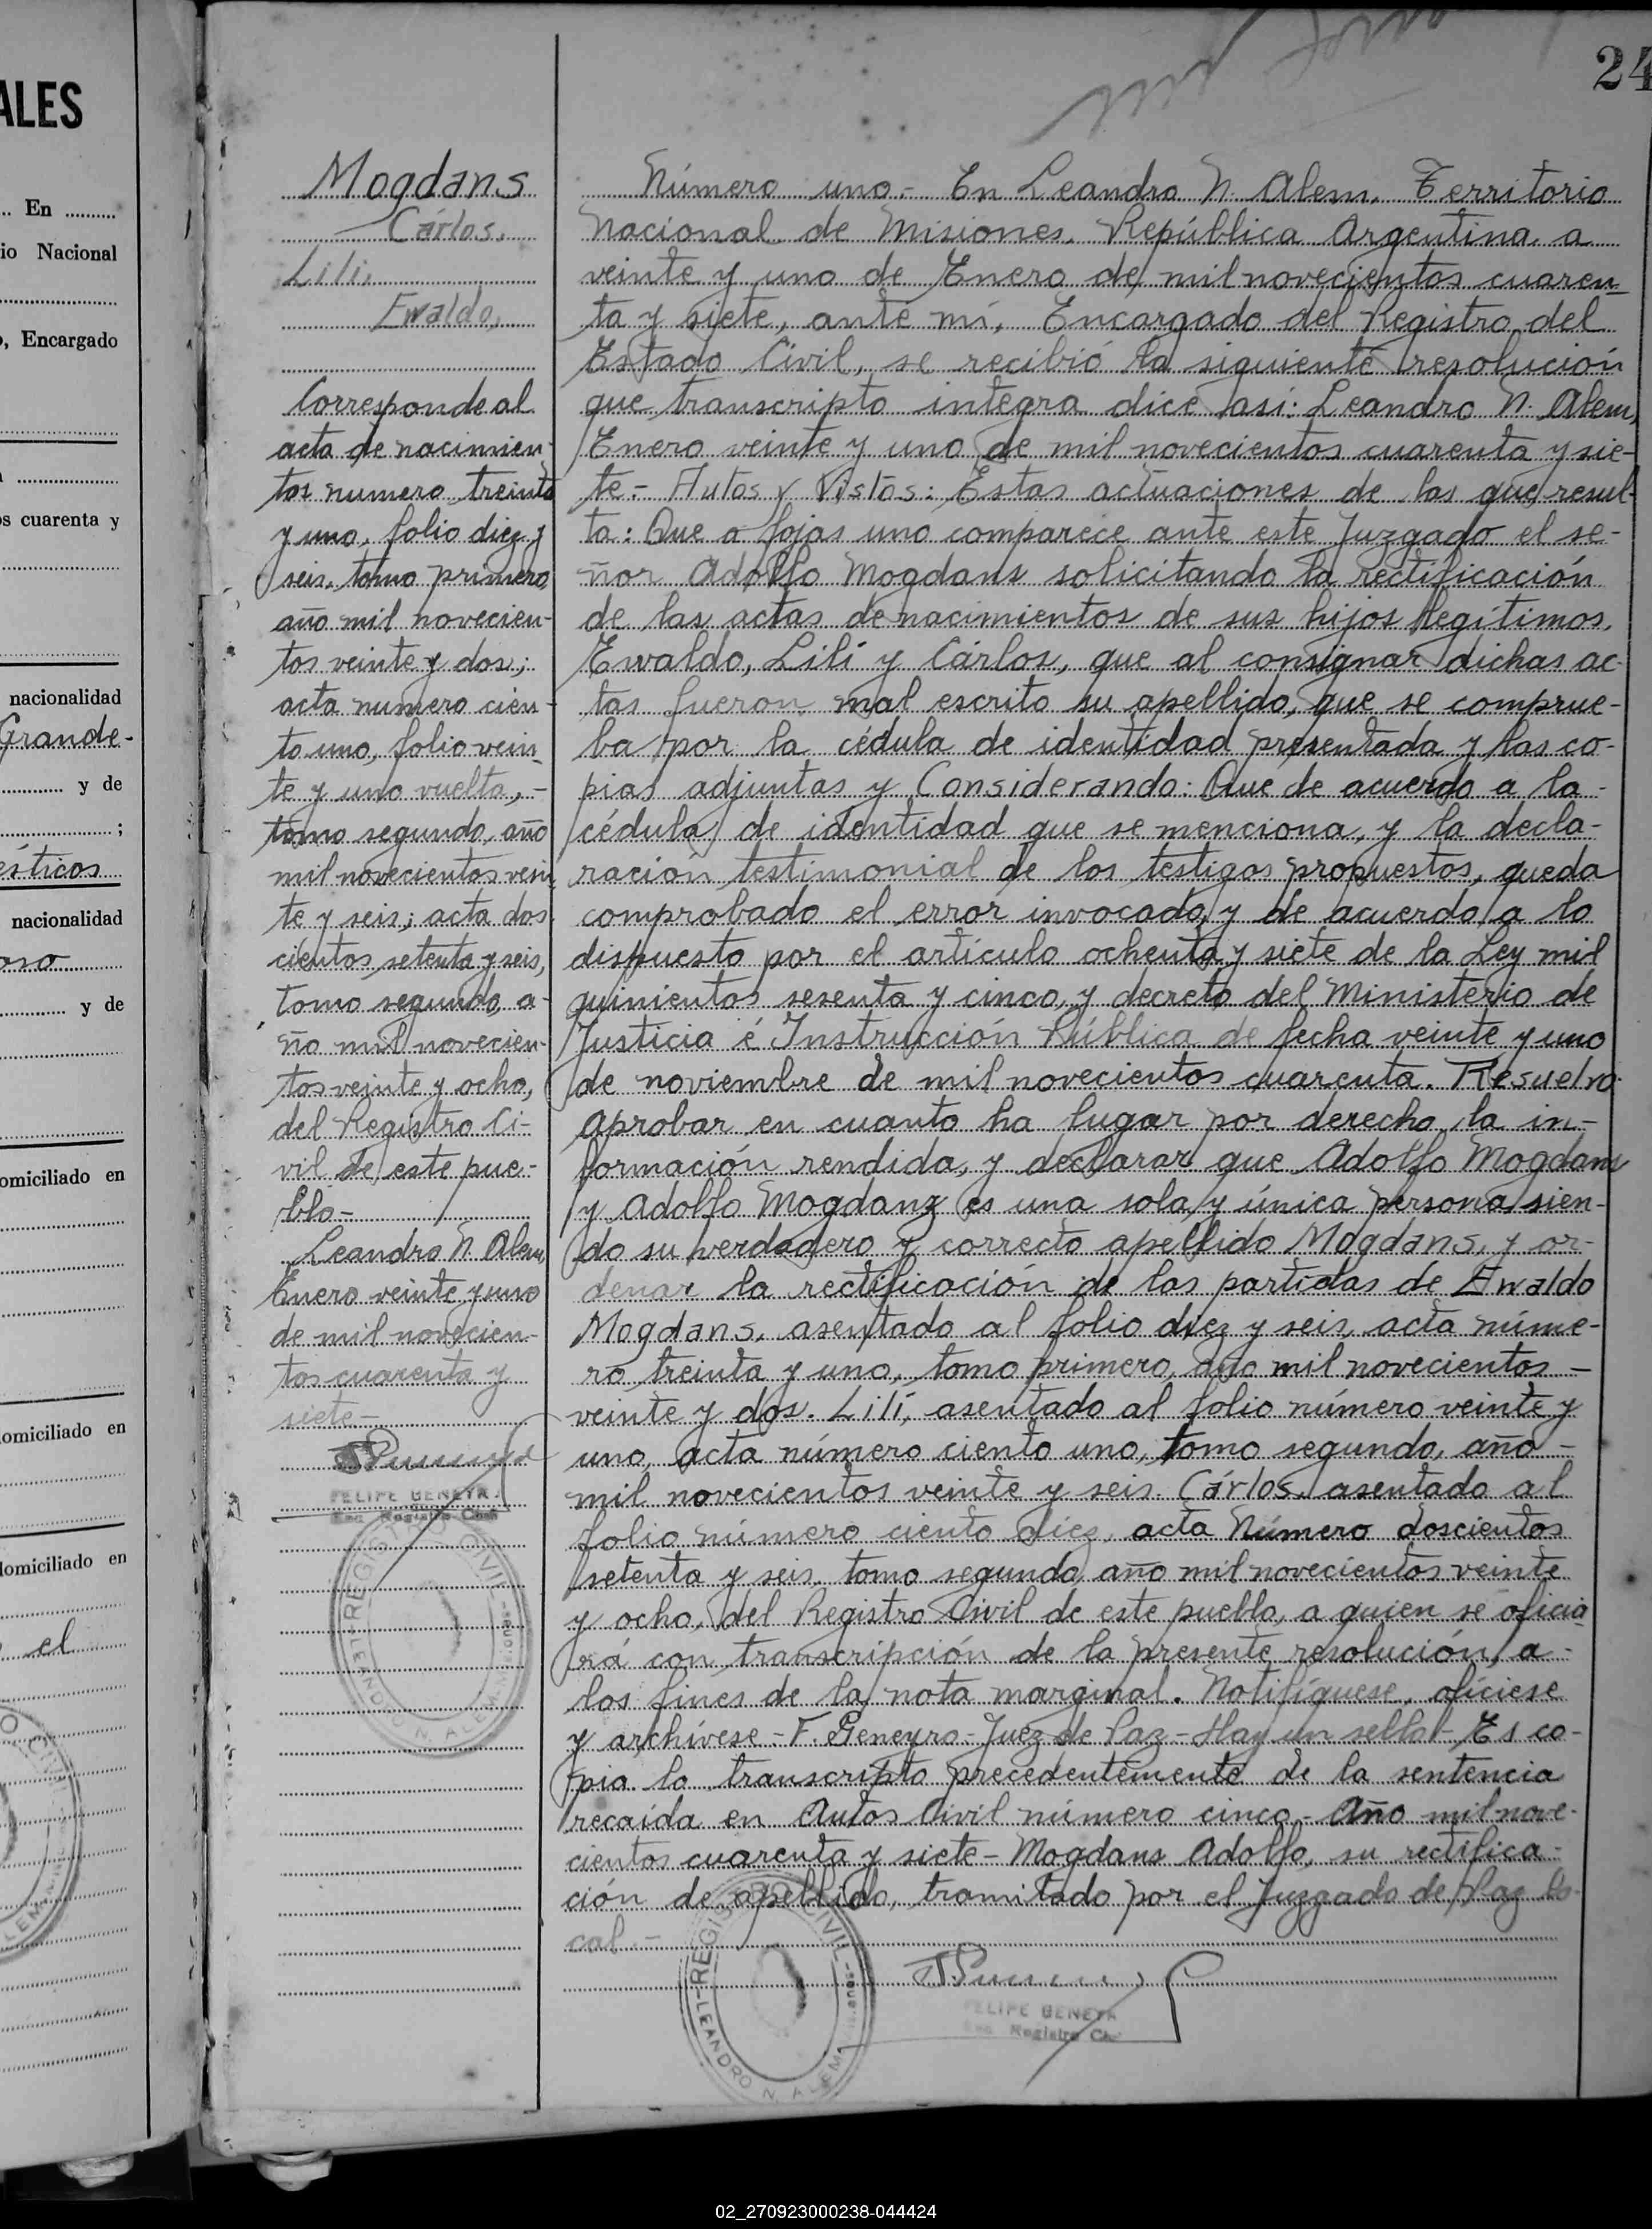 ALES
.. En
io Nacional
, Encargado
s cuarenta y
nacionalidad
Grande-
y de
;
ésticos
nacionalidad
oso
y de
omiciliado en
omiciliado en
domiciliado en
el
24
Mogdans
Cárlos.
Lili,
Ewaldo,
Corresponde al
acta de nacimien-
tos numero treinta
y uno, folio diez y
seis, tomo primero,
año mil novecien-
tos veinte y dos;
acta numero cien-
to uno, folio vein-
te y uno vuelta,-
tomo segundo, año
mil novecientos vein-
te y seis; acta dos
cientos setenta y seis,
tomo segundo, a-
ño mil novecien-
tos veinte y ocho,
del Registro Ci-
vil de este pue-
blo-
Leandro N. Alem,
Enero veinte y uno
de mil novecien-
tos cuarenta y
siete-
FELIPE GENEYR
Enc Registro Civil
REGISTRO CIVIL
LEANDRO N. ALEM
Número uno.- En Leandro N. Alem. Territorio
Nacional de Misiones. República Argentina, a
veinte y uno de Enero de mil novecientos cuaren-
ta y siete, ante mí, Encargado del Registro del
Estado Civil, se recibió la siguiente resolución
que transcripto integra dice así: Leandro N. Alem,
Enero veinte y uno de mil novecientos cuarenta y sie-
te.- Autos y Vistos: Estas actuaciones de las que resul-
ta: Que a fojas uno comparece ante este Juzgado el se-
ñor Adolfo Mogdans solicitando la rectificación
de las actas de nacimientos de sus hijos legítimos,
Ewaldo, Lili y Cárlos, que al consignar dichas ac-
tas fueron mal escrito su apellido, que se comprue-
ba por la cédula de identidad presentada y las co-
pias adjuntas y Considerando: Que de acuerdo a la-
cédula de identidad que se menciona, y la decla-
ración testimonial de los testigos propuestos, queda
comprobado el error invocado, y de acuerdo a lo
dispuesto por el artículo ochenta y siete de la Ley mil
quinientos sesenta y cinco, y decreto del Ministerio de
Justicia é Instrucción Pública de fecha veinte y uno
de noviembre de mil novecientos cuarenta. Resuelvo
aprobar en cuanto ha lugar por derecho, la in-
formación rendida, y declarar que Adolfo Mogdans
y Adolfo Mogdanz es una sola y única persona, sien-
do su verdadero y correcto apellido Mogdans, y or-
denar la rectificación de las partidas de Ewaldo
Mogdans, asentado al folio diez y seis, acta núme-
ro treinta y uno, tomo primero, año mil novecientos-
veinte y dos. Lili, asentado al folio número veinte y
uno, acta número ciento uno, tomo segundo, año-
mil novecientos veinte y seis. Cárlos, asentado al
folio número ciento diez, acta Número doscientos
setenta y seis, tomo segundo, año mil novecientos veinte
y ocho, del Registro Civil de este pueblo, a quien se oficia-
rá con transcripción de la presente resolución, a-
los fines de la nota marginal. Notifíquese, ofíciese
y archívese.- F. Geneyro- Juez de Paz- Hay un sello- Es co-
pia lo transcripto precedentemente de la sentencia
recaída en Autos Civil número cinco- Año mil nove-
cientos cuarenta y siete- Mogdans Adolfo, su rectifica-
ción de apellido, tramitado por el Juzgado de Paz lo-
cal.-
FELIPE GENEYR
Enc Registro Civ
REGISTRO CIVIL
LEANDRO N. ALEM
02_270923000238-044424